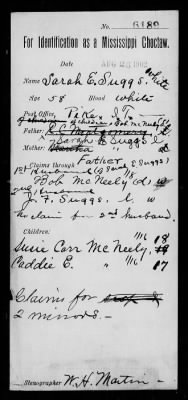 No. 6180
For Identification as a Mississippi Choctaw.
AUG 26 1902
Name Sarah E. Suggs. White
Age 58 Blood white
Post Office, Tike, I.T.
Father, R. C. Montgomery
Mother, Sarah Suggs
Claims through Father
1st Husband (of Sarah E. Suggs)
Bob McNeely (d) 1/8
2nd Husband
J. F. Suggs. l. w
no claim for 2nd husband.
Children:
Susie Carr McNeely, 1/16 18
Caddie E. " 1/16 17
Claims for
2 minors.-
Stenographer W. H. Martin-